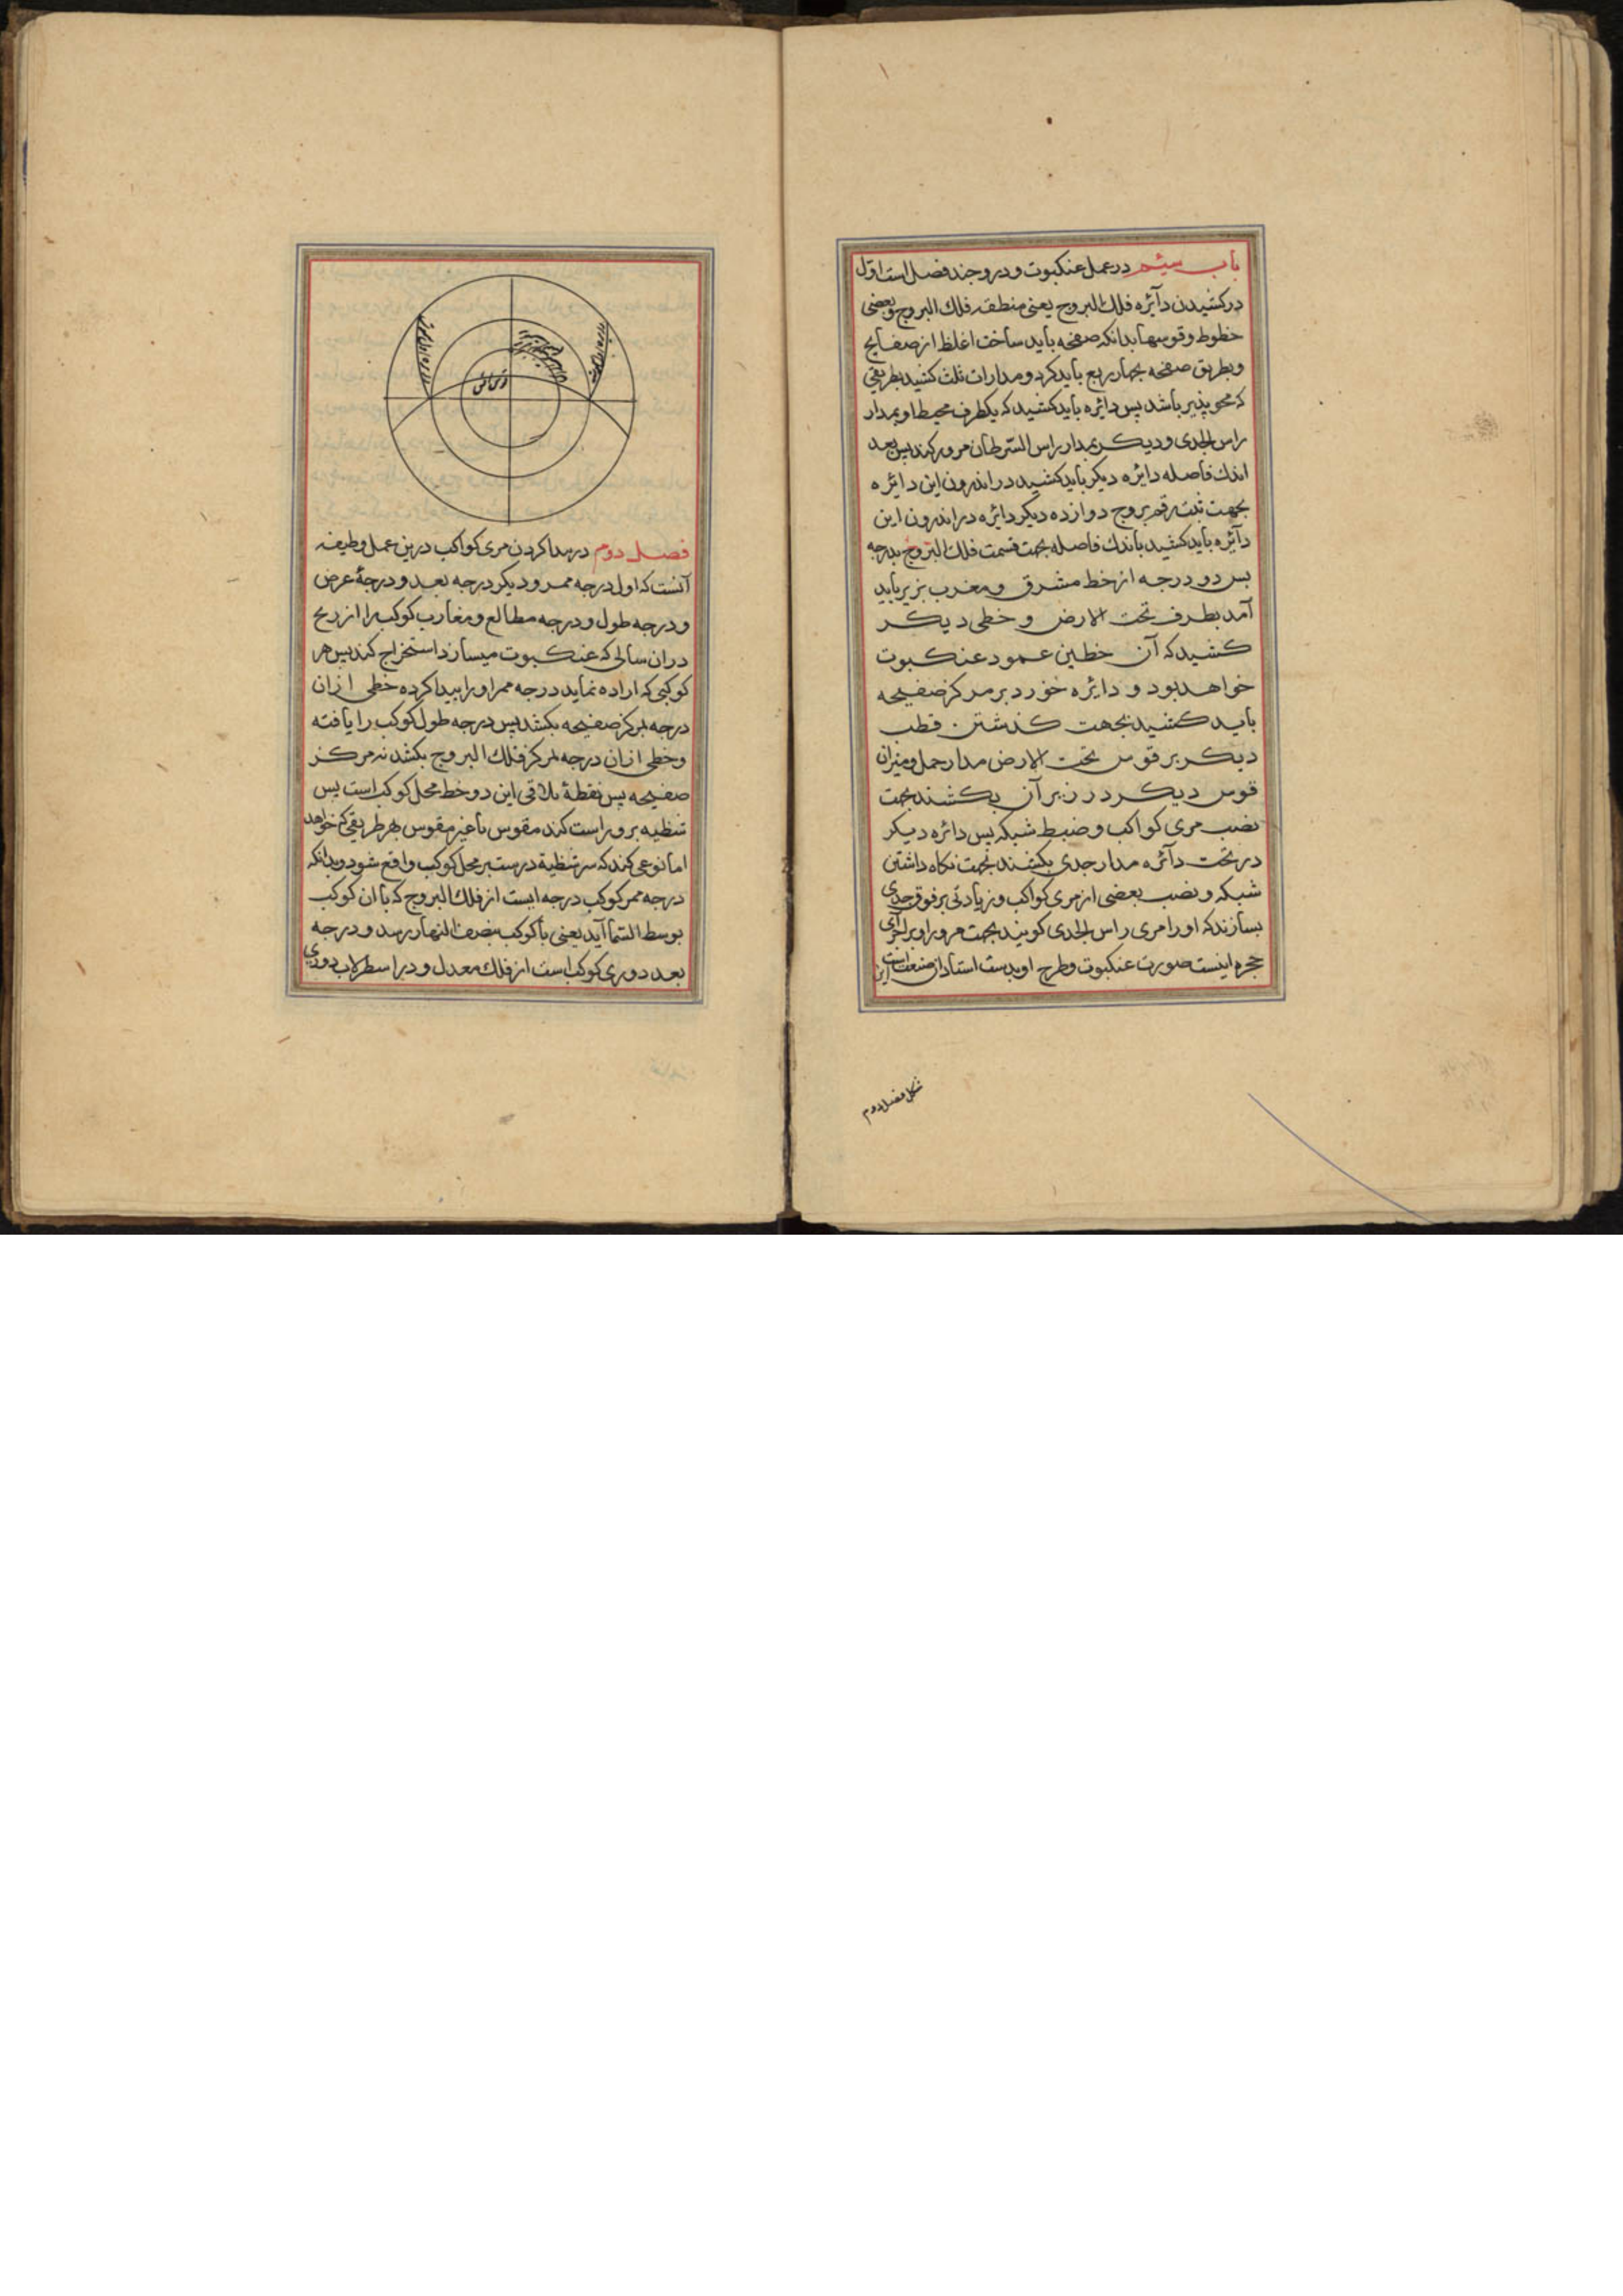 باب سیم در عمل عنکبوت و در و چند فصل است اول
در کشیدن دآئره فلك البروج یعنی منطقه فلك البروج و بعضی
خطوط و قوسها بدانکه صفحه باید ساخت اغلظ از صفایح
و بطریق صفحه بچهار ربع باید کرد و مدارات ثلث کشید بطریقی
که محو پذیر باشد پس دایره باید کشید که یکطرف محیط او بمدار
راس الجدی و دیکر بمدار راس السرطان مرور کند پس بعد
اندك فاصله دایره دیکر باید کشید در اندرون این دائره
بجهت ثبت رقم بروج دوازده دیکر دائره در اندرون این
دآئره باید کشید باندك فاصله بجهت قسمت فلك البروج بدرجه
پس دو درجه از خط مشرق و مغرب بزیر باید
آمد بطرف تحت الارض و خطی دیکر
کشید که آن خطین عمود عنکبوت
خواهد بود و دایره خورد بر مرکز صفیحه
باید کشید بجهت کذشتن قطب
دیکر بر قوس تحت الارض مدار حمل و میزان
قوس دیکر در زیر آن بکشند بجهت
نصب مری کواکب و ضبط شبکه پس دائره دیکر
در تحت دآئره مدار جدی بکشند بجهت نکاه داشتن
شبکه و نصب بعضی از مری کواکب و زیادتی بر فوق جدی
بسازند که اورا مری راس الجدی کویند بجهت مرور او بر اجزآی
حجره اینست صورت عنکبوت و طرح او بدست استادان صنعت است این
شکل فصل دوم
فصل دوم در پیدا کردن مری کواکب درین عمل وظیفه
آنست که اول درجه ممر و دیکر درجه بعد و درجۀ عرض
و درجه طول و درجه مطالع و مغارب کوکب را از زیج
دران سالی که عنکبوت میسازد استخراج کند پس هر
کوکبی که اراده نماید درجه ممر او را پیدا کرده خطی ازان
درجه بمرکز صفیحه بکشد پس درجه طول کوکب را یافته
و خطی ازان درجه بمرکز فلك البروج بکشد نه مرکز
صفیحه پس نقطۀ تلاقی این دو خط محل کوکب است پس
شظیه برو راست کند مقوس یا غیر مقوس بهر طریقی که خواهد
اما نوعی کند که سر شظیه درست بر محل کوکب واقع شود و بدانکه
درجه ممر کوکب درجه ایست از فلك البروج که با ان کوکب
بوسط السمآ آید یعنی با کوکب بنصف النهار رسد و درجه
بعد دوری کوکب است از فلك معدل و در اسطرلاب دوری